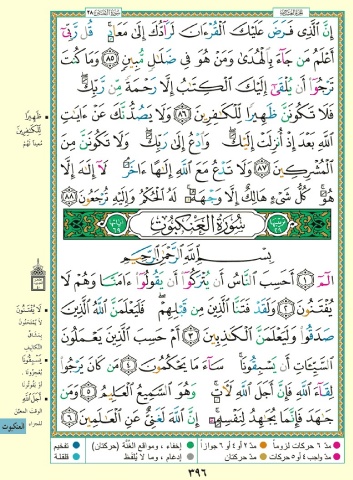 سُورَةُ القَصَصِ ٢٨
إِنَّ ٱلَّذِى فَرَضَ عَلَيْكَ ٱلْقُرْءَانَ لَرَآدُّكَ إِلَىٰ مَعَادٍ ۚ قُل رَّبِّىٓ
أَعْلَمُ مَن جَآءَ بِٱلْهُدَىٰ وَمَنْ هُوَ فِى ضَلَٰلٍ مُّبِينٍ ٨٥ وَمَا كُنتَ
تَرْجُوٓا۟ أَن يُلْقَىٰٓ إِلَيْكَ ٱلْكِتَٰبُ إِلَّا رَحْمَةً مِّن رَّبِّكَ ۖ
فَلَا تَكُونَنَّ ظَهِيرًا لِّلْكَٰفِرِينَ ٨٦ وَلَا يَصُدُّنَّكَ عَنْ ءَايَٰتِ
ٱللَّهِ بَعْدَ إِذْ أُنزِلَتْ إِلَيْكَ ۖ وَٱدْعُ إِلَىٰ رَبِّكَ ۖ وَلَا تَكُونَنَّ مِنَ
ٱلْمُشْرِكِينَ ٨٧ وَلَا تَدْعُ مَعَ ٱللَّهِ إِلَٰهًا ءَاخَرَ ۘ لَآ إِلَٰهَ إِلَّا
هُوَ ۚ كُلُّ شَىْءٍ هَالِكٌ إِلَّا وَجْهَهُۥ ۚ لَهُ ٱلْحُكْمُ وَإِلَيْهِ تُرْجَعُونَ ٨٨
سُورَةُ العَنكَبُوتِ
بِسْمِ ٱللَّهِ ٱلرَّحْمَٰنِ ٱلرَّحِيمِ
الٓمٓ ١ أَحَسِبَ ٱلنَّاسُ أَن يُتْرَكُوٓا۟ أَن يَقُولُوٓا۟ ءَامَنَّا وَهُمْ لَا
يُفْتَنُونَ ٢ وَلَقَدْ فَتَنَّا ٱلَّذِينَ مِن قَبْلِهِمْ ۖ فَلَيَعْلَمَنَّ ٱللَّهُ ٱلَّذِينَ
صَدَقُوا۟ وَلَيَعْلَمَنَّ ٱلْكَٰذِبِينَ ٣ أَمْ حَسِبَ ٱلَّذِينَ يَعْمَلُونَ
ٱلسَّيِّـَٔاتِ أَن يَسْبِقُونَا ۚ سَآءَ مَا يَحْكُمُونَ ٤ مَن كَانَ يَرْجُوا۟
لِقَآءَ ٱللَّهِ فَإِنَّ أَجَلَ ٱللَّهِ لَءَاتٍ ۚ وَهُوَ ٱلسَّمِيعُ ٱلْعَلِيمُ ٥ وَمَن
جَٰهَدَ فَإِنَّمَا يُجَٰهِدُ لِنَفْسِهِۦٓ ۚ إِنَّ ٱللَّهَ لَغَنِىٌّ عَنِ ٱلْعَٰلَمِينَ ٦
ظَهِيرًا
لِّلْكَافِرِينَ
مُعِينًا لَهُمْ
لَا يُفْتَنُونَ
يَسْبِقُونَا
أَجَلَ اللَّهِ
العنكبوت
مدّ ٦ حركات لزوماً مدّ ٢ أو ٤ أو ٦ جوازاً إخفاء، ومواقع الغُنَّة (حركتان) تفخيم
مدّ واجب ٤ أو ٥ حركات مدّ حركتان إدغام، وما لا يُلفظ قلقلة
٣٩٦